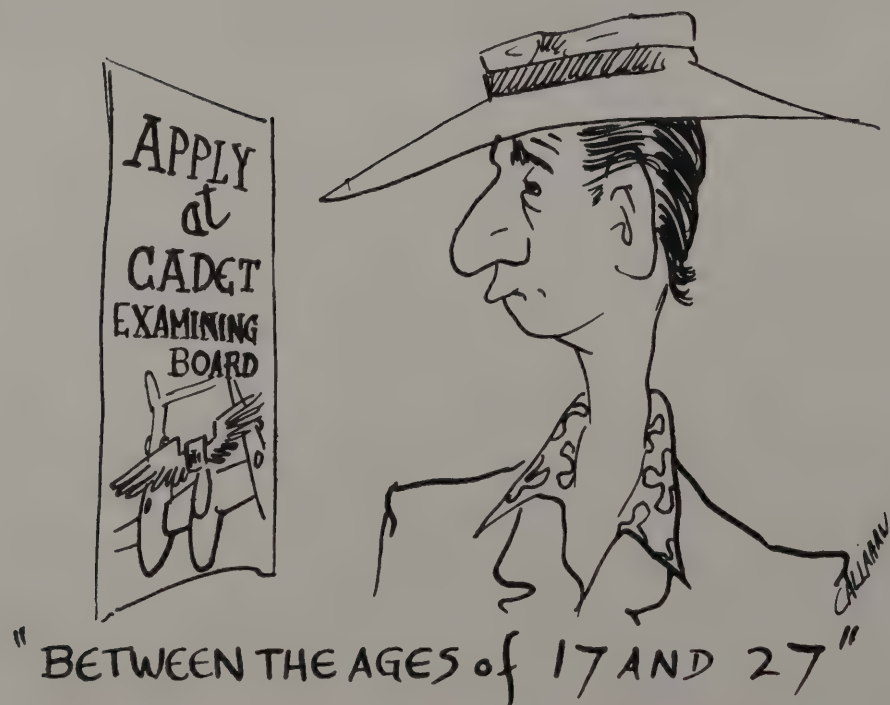 APPLY
at
CADET
EXAMINING
BOARD
"BETWEEN THE AGES of 17 AND 27"